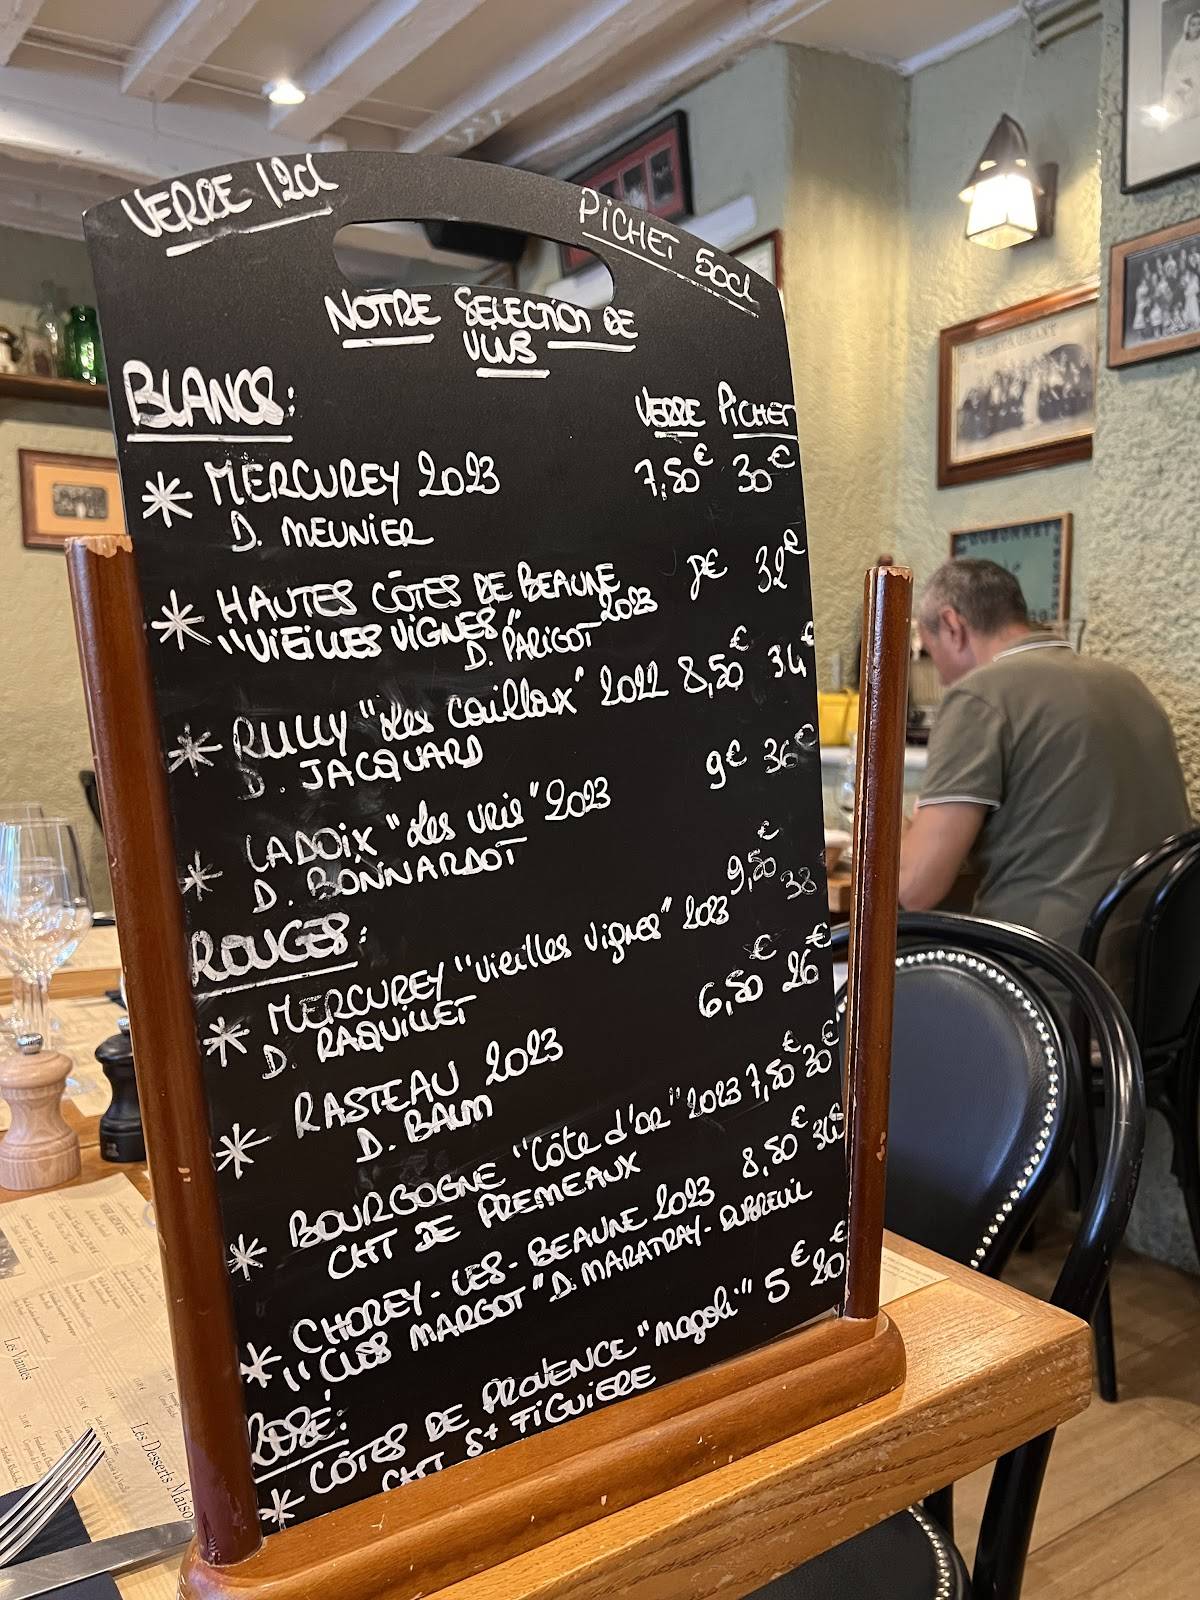 VERRE 12cl
PICHET 50cl
NOTRE SELECTION DE
VINS
BLANCS:
VERRE PICHET
* MERCUREY 2023 7,50€ 30€
D. MEUNIER
* HAUTES CÔTES DE BEAUNE 8€ 32€
"VIEILLES VIGNES" 2023
D. PARIGOT
* RULLY "Les Cailloux" 2022 8,50€ 34€
D. JACQUARD
* LADOIX "Les Vris" 2023 9€ 36€
D. BONNARDOT
ROUGES:
* MERCUREY "Vieilles Vignes" 2023 9,50€ 38
D. RAQUILLET
* RASTEAU 2023 6,50€ 26€
D. BALM
* BOURGOGNE "Côte d'OR" 2023 7,50€ 30€
CHT DE PREMEAUX
* CHOREY-LES-BEAUNE 2023 8,50€ 34€
"CLOS MARGOT" D. MARATRAY-DUBREUIL
ROSÉ:
* CÔTES DE PROVENCE "Magali" 5€ 20€
CHT St FIGUIERE
Les Viandes
Les Desserts Maiso